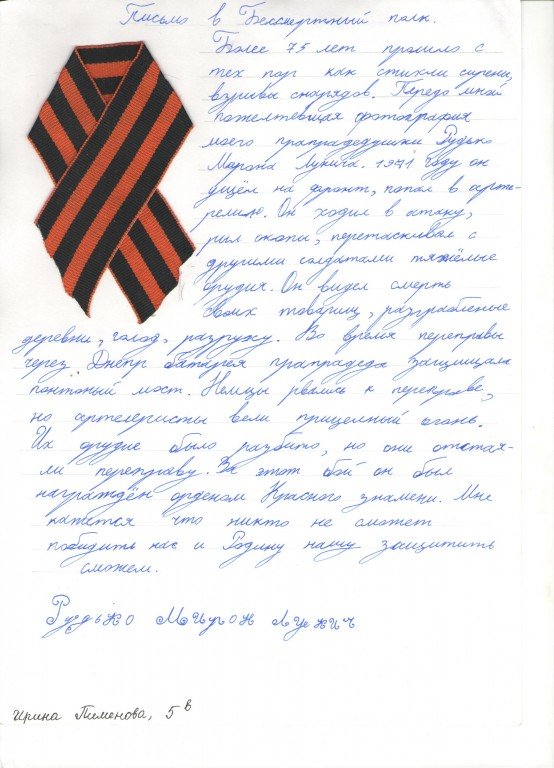 Письмо в Бессмертный полк.
Более 75 лет прошло с
тех пор как стихли сирены,
взрывы снарядов. Передо мной
пожелтевшая фотография
моего прапрадедушки Рудько
Мирона Лукича. 1941 году он
ушёл на фронт, попал в арте-
релию. Он ходил в атаку,
рыл окопы, перетаскивал с
другими солдатами тяжёлые
орудия. Он видел смерть
своих товарищ, разграбленые
деревни, голод, разруху. Во время переправы
через Днепр батарея прапрадеда защищала
понтоный мост. Немцы рвались к
но артелеристы вели прицелный огонь.
Их орудие было разбито, но они отстоя-
ли переправу. За этот бой он был
награждён орденом Красного знамени. Мне
кажется что никто не сможет
победить нас и Родину нашу защитить
сможем.
Рудько Мирон Лукич
Ирина Пименова, 5 в